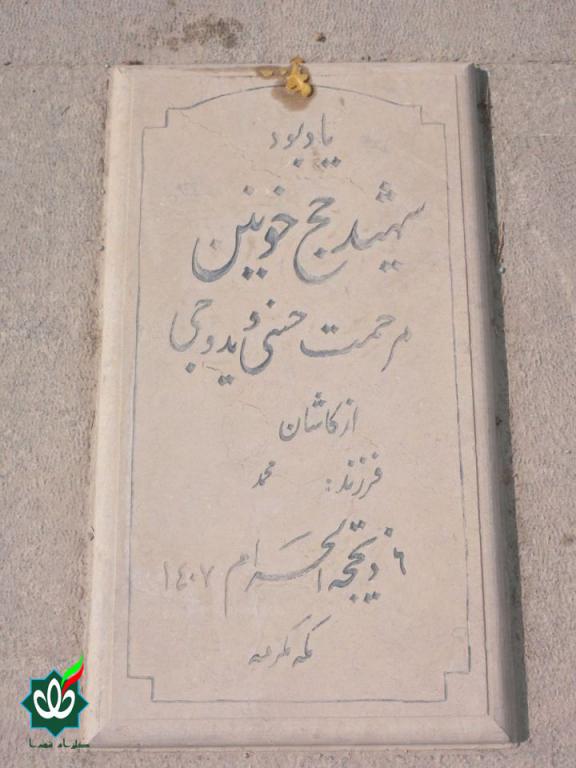 یادبود
شهید حج خونین
مرحمت حسنی ویدوجی
از کاشان
فرزند: محمد
۶ ذیحجه الحرام ۱۴۰۷
مکه مکرمه
گلزار شهدا